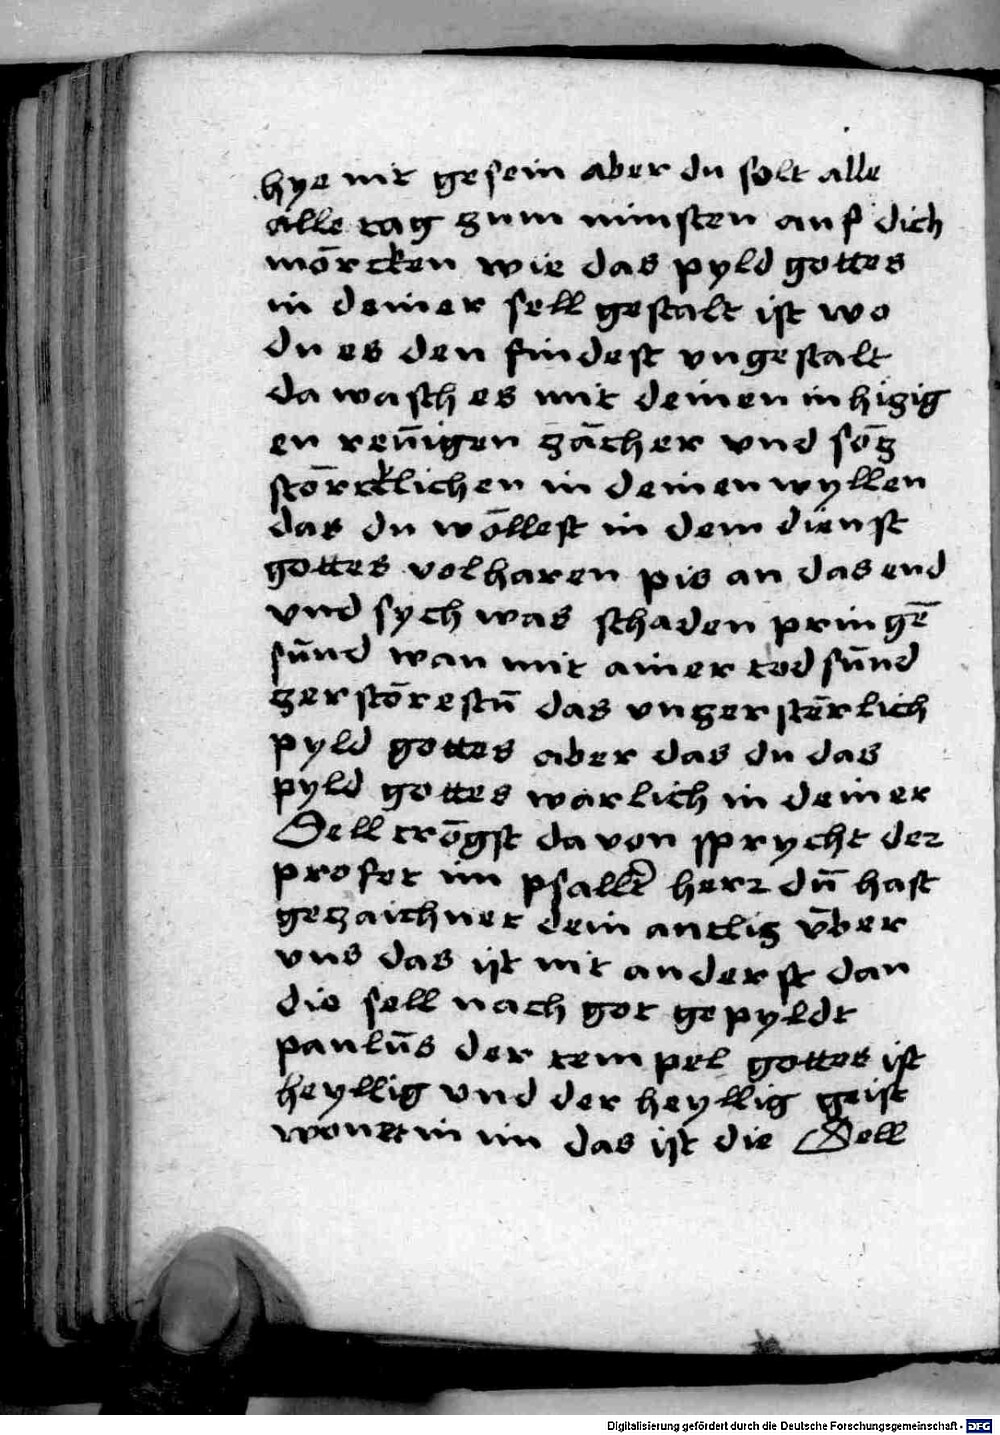 hye nit gesein aber du solt alle
alle tag zum minsten auf dich
mörcken wie das pyld gottes
in deiner sell gestalt ist wo
du es den findest vngestalt
da wasch es mit deinen inhizig
en reūigen zächer vnd söz
störcklichen in deinen wyllen
das du wöllest in dem dienst
gottes volharen pis an das end
vnd sych was schaden pringē
sūnd wan mit ainer tod sūnd
zerstörestū das vnzerstērlich
pyld gottes aber das du das
pyld gottes warlich in deiner
Sell trōgst da von sprycht der
profet im psallt̄ herr dū hast
gezaichnet dein antliz v̄ber
vns das ist nit anderst dan
die sell nach got gepyldt
paulūs der tempel gottes ist
heyllig vnd der heyllig geist
wonet in im das ist die Sell
Digitalisierung gefördert durch die Deutsche Forschungsgemeinschaft - DFG